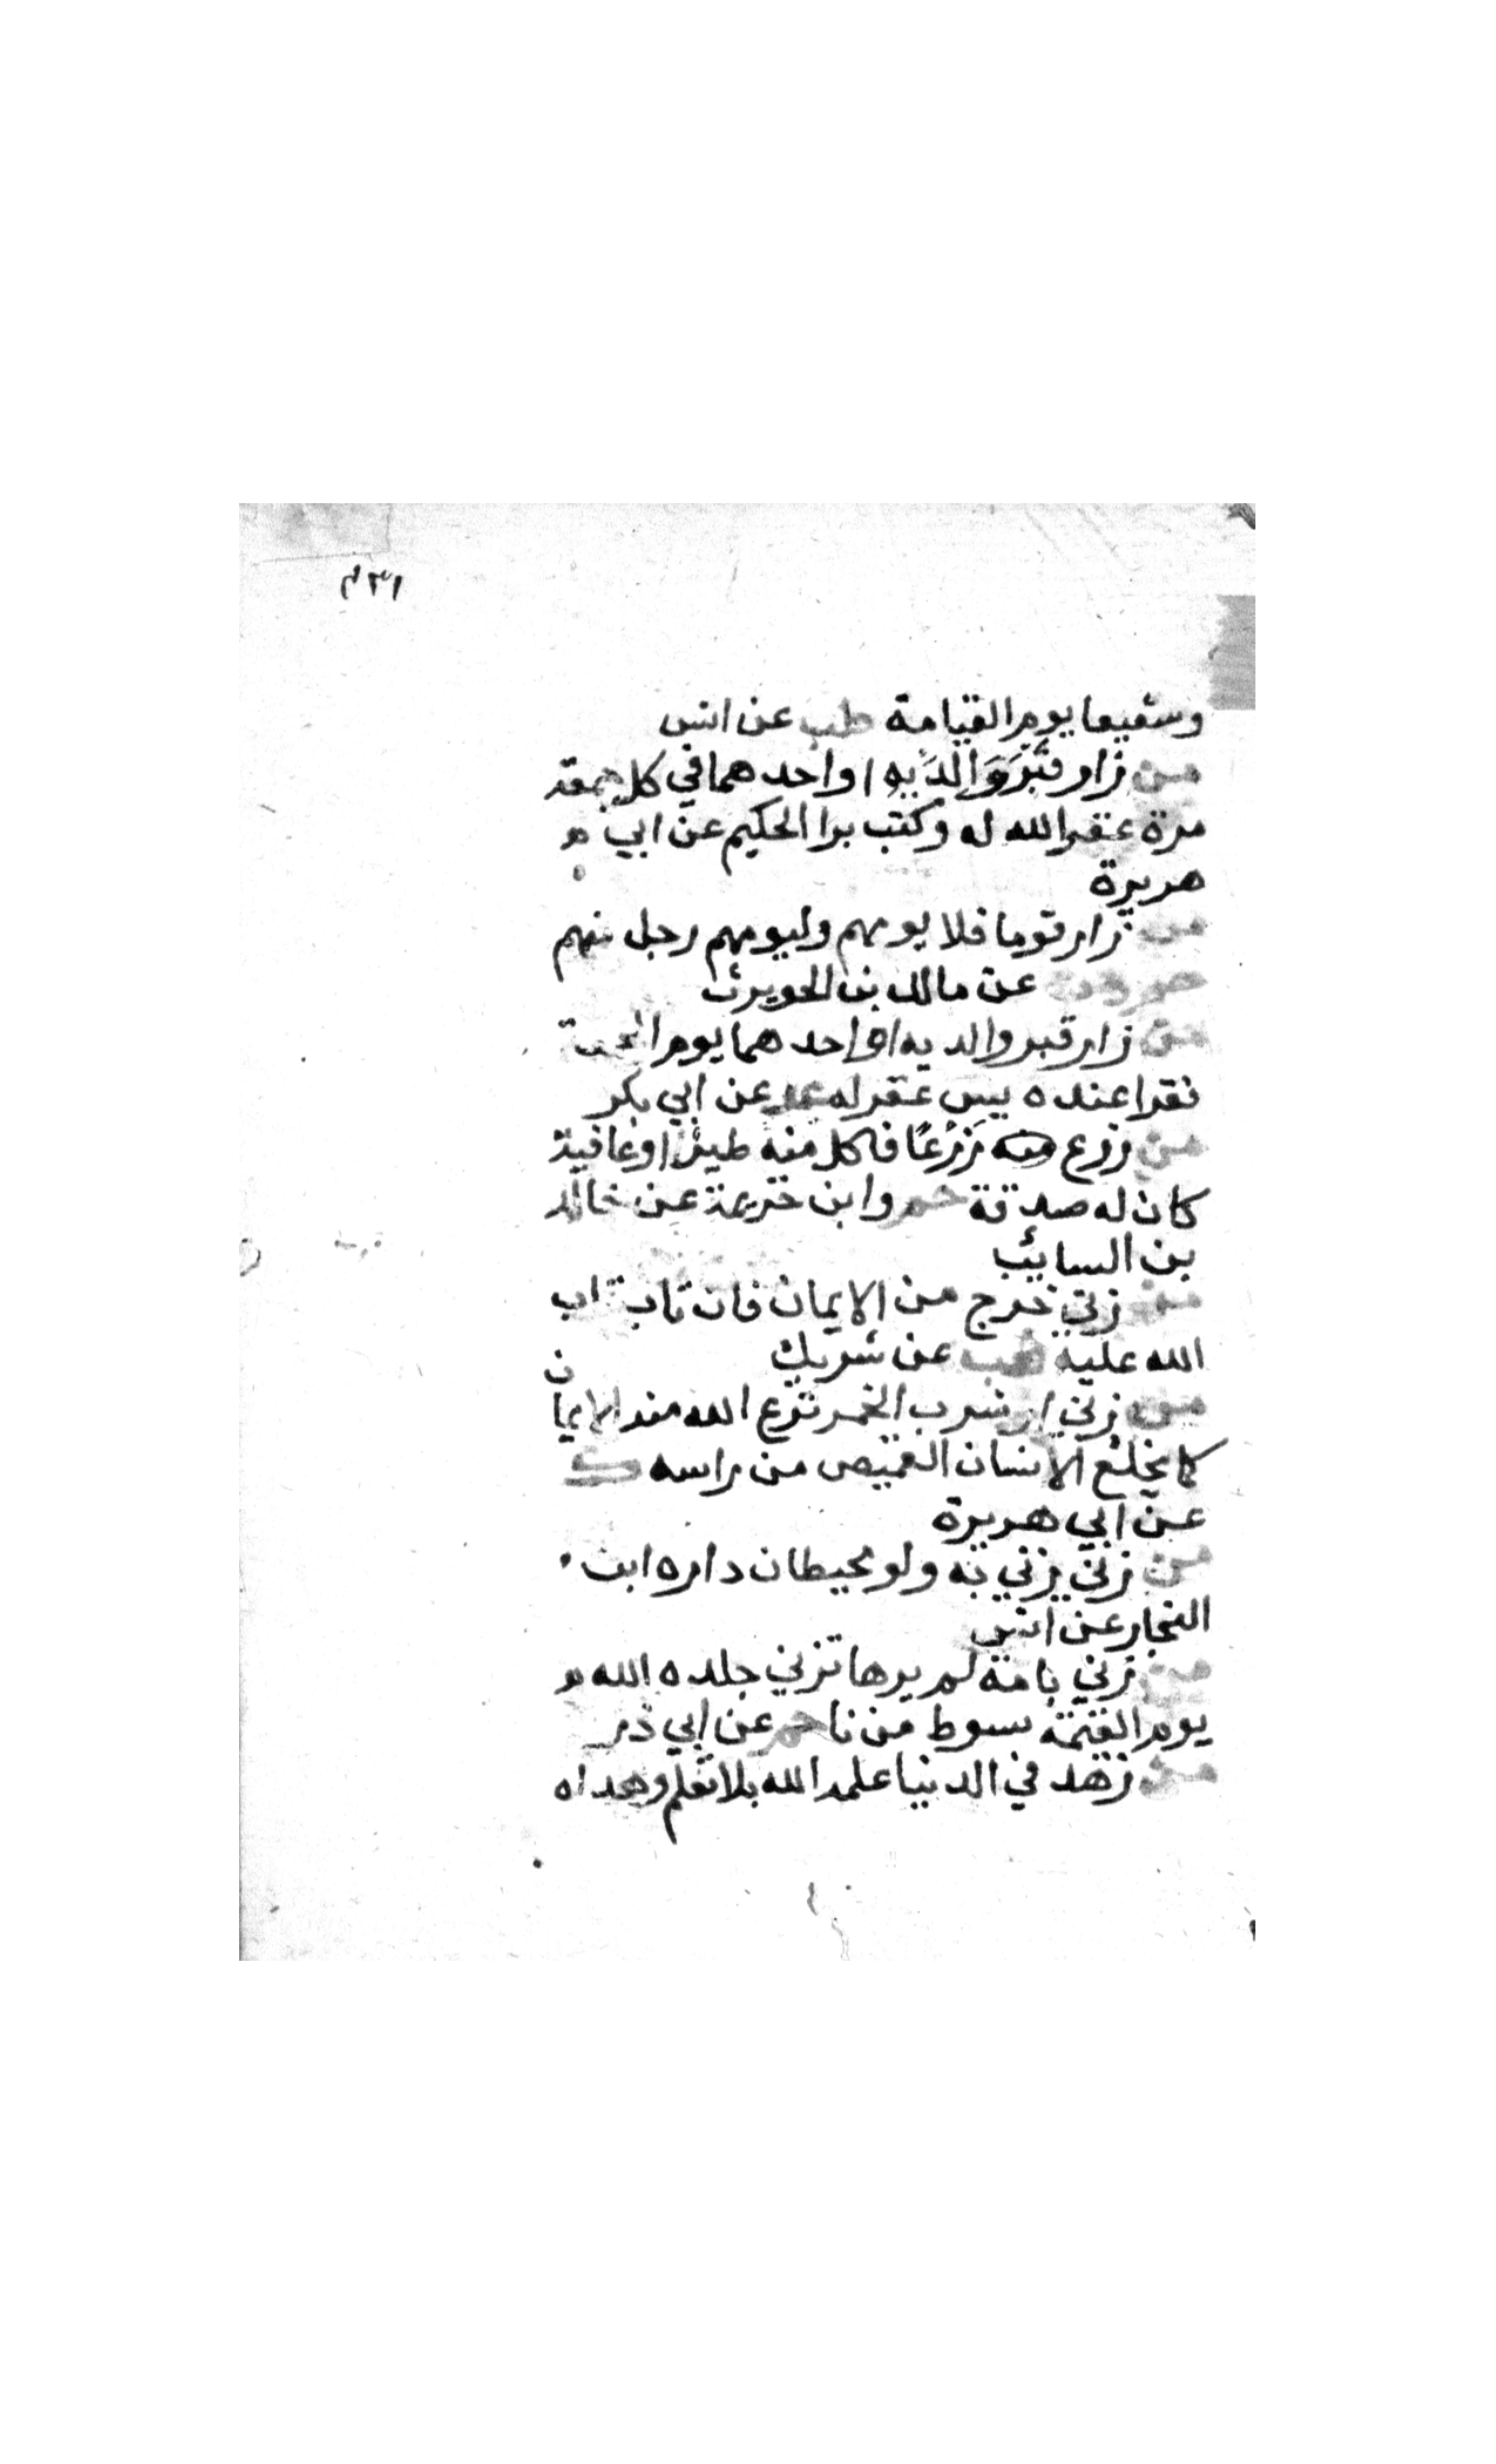 وشفيعا يوم القيامة طب عن انس
من زار قَبْرَ وَالِدَيْهِ او احدهما في كل جمعة
مرة غفر الله له وكتب برا الحكيم عن ابي ه
هريرة
من زار قوما فلا يومهم وليومهم رجل منهم
عن مالك بن الحويرث
من زار قبر والديه او احدهما يوم الجمعة
فقرا عنده يس غفر له عد عن ابي بكر
من زرع زَرْعًا فاكل منه طير او عافية
كان له صدقة حم وابن خزيمة عن خالد
بن السايب
من زني خرج من الايمان فان تاب تاب
الله عليه طب عن شريك
من زني او شرب الخمر نزع الله منه الايمان
كما يخلع الانسان القميص من راسه ك
عن ابي هريرة
من زني يزني به ولو بحيطان داره ابن
النجار عن انس
من زني بامة لم يرها تزني جلده الله ه
يوم القيمة بسوط من نا حم عن ابي ذر
من زهد في الدنيا علمه الله بلا تعلم وهداه